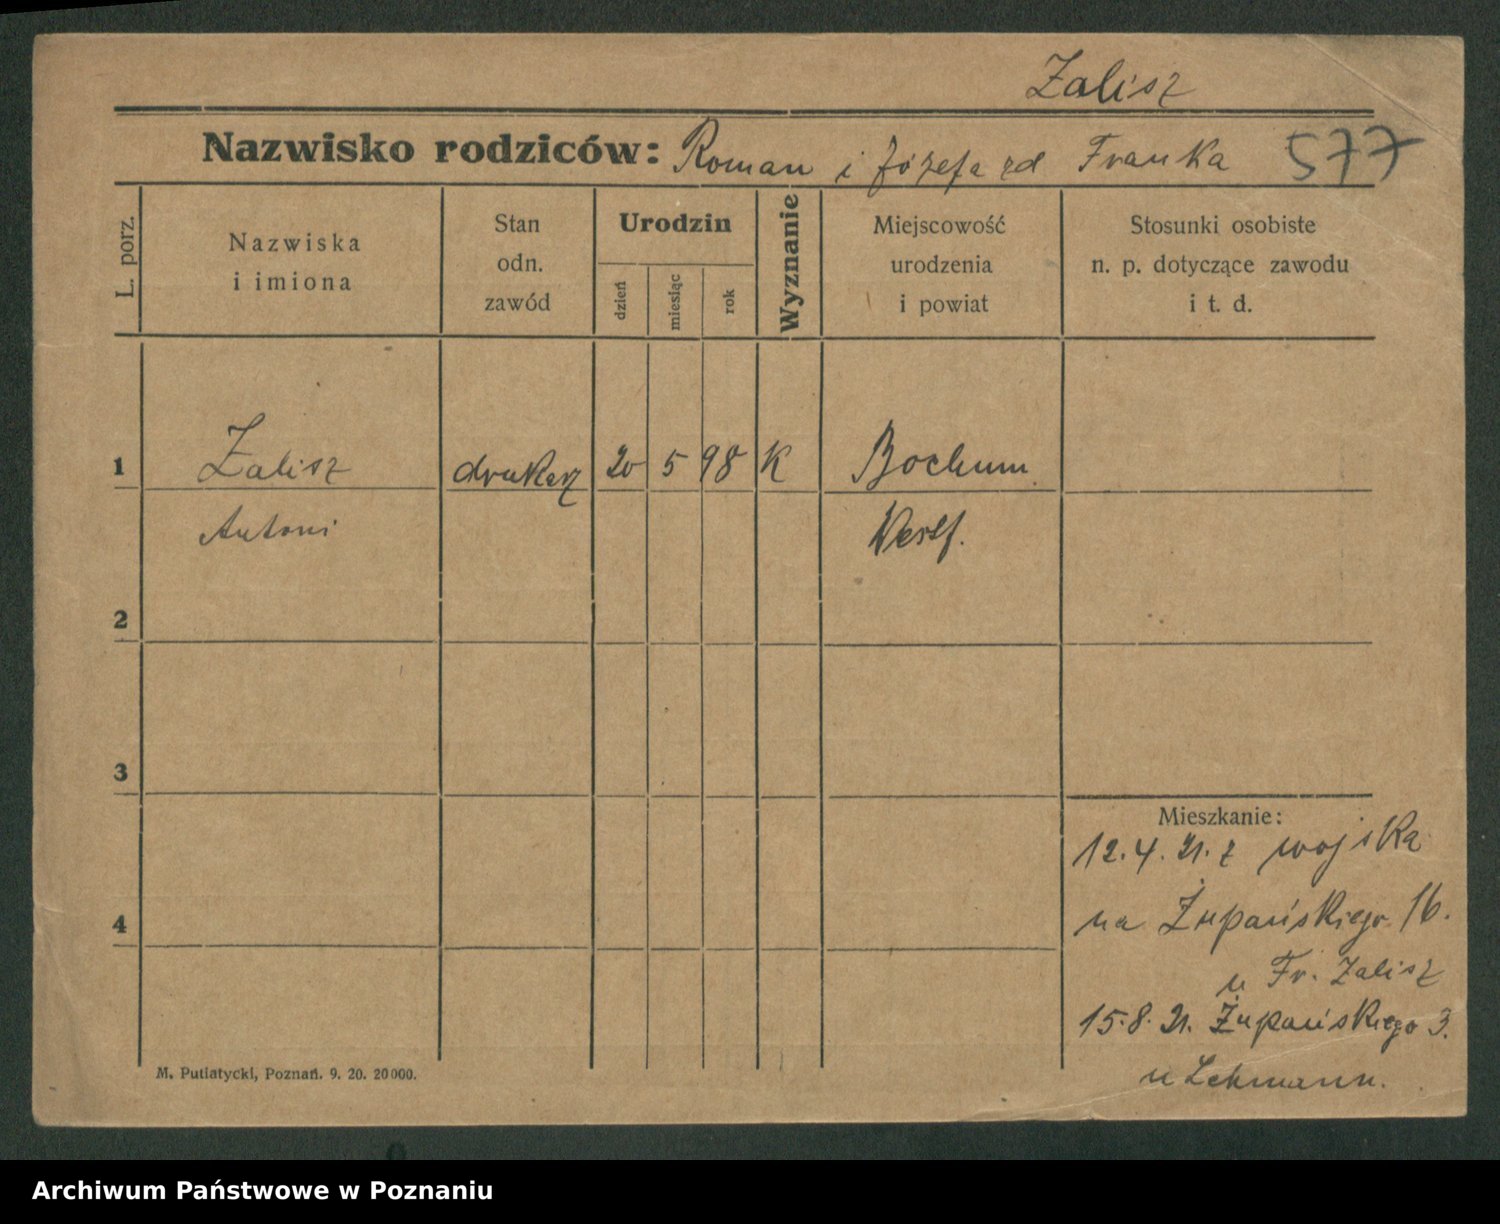 Zalisz
Nazwisko rodziców: Roman i Józefa zd Franka 577
L. porz.
Nazwiska
i imiona
Stan
odn.
zawód
Urodzin
dzień
miesiąc
rok
Wyznanie
Miejscowość
urodzenia
i powiat
Stosunki osobiste
n. p. dotyczące zawodu
i t. d.
1 Zalisz drukarz 20 5 98 K Bochum
Antoni Westf.
2
3
Mieszkanie:
12.4.21. z wojska
4 na Żupańskiego 16.
u Fr. Zalisz
15.8.21. Żupańskiego 3.
u Lehmann.
M. Putiatycki, Poznań. 9. 20. 20000.
Archiwum Państwowe w Poznaniu